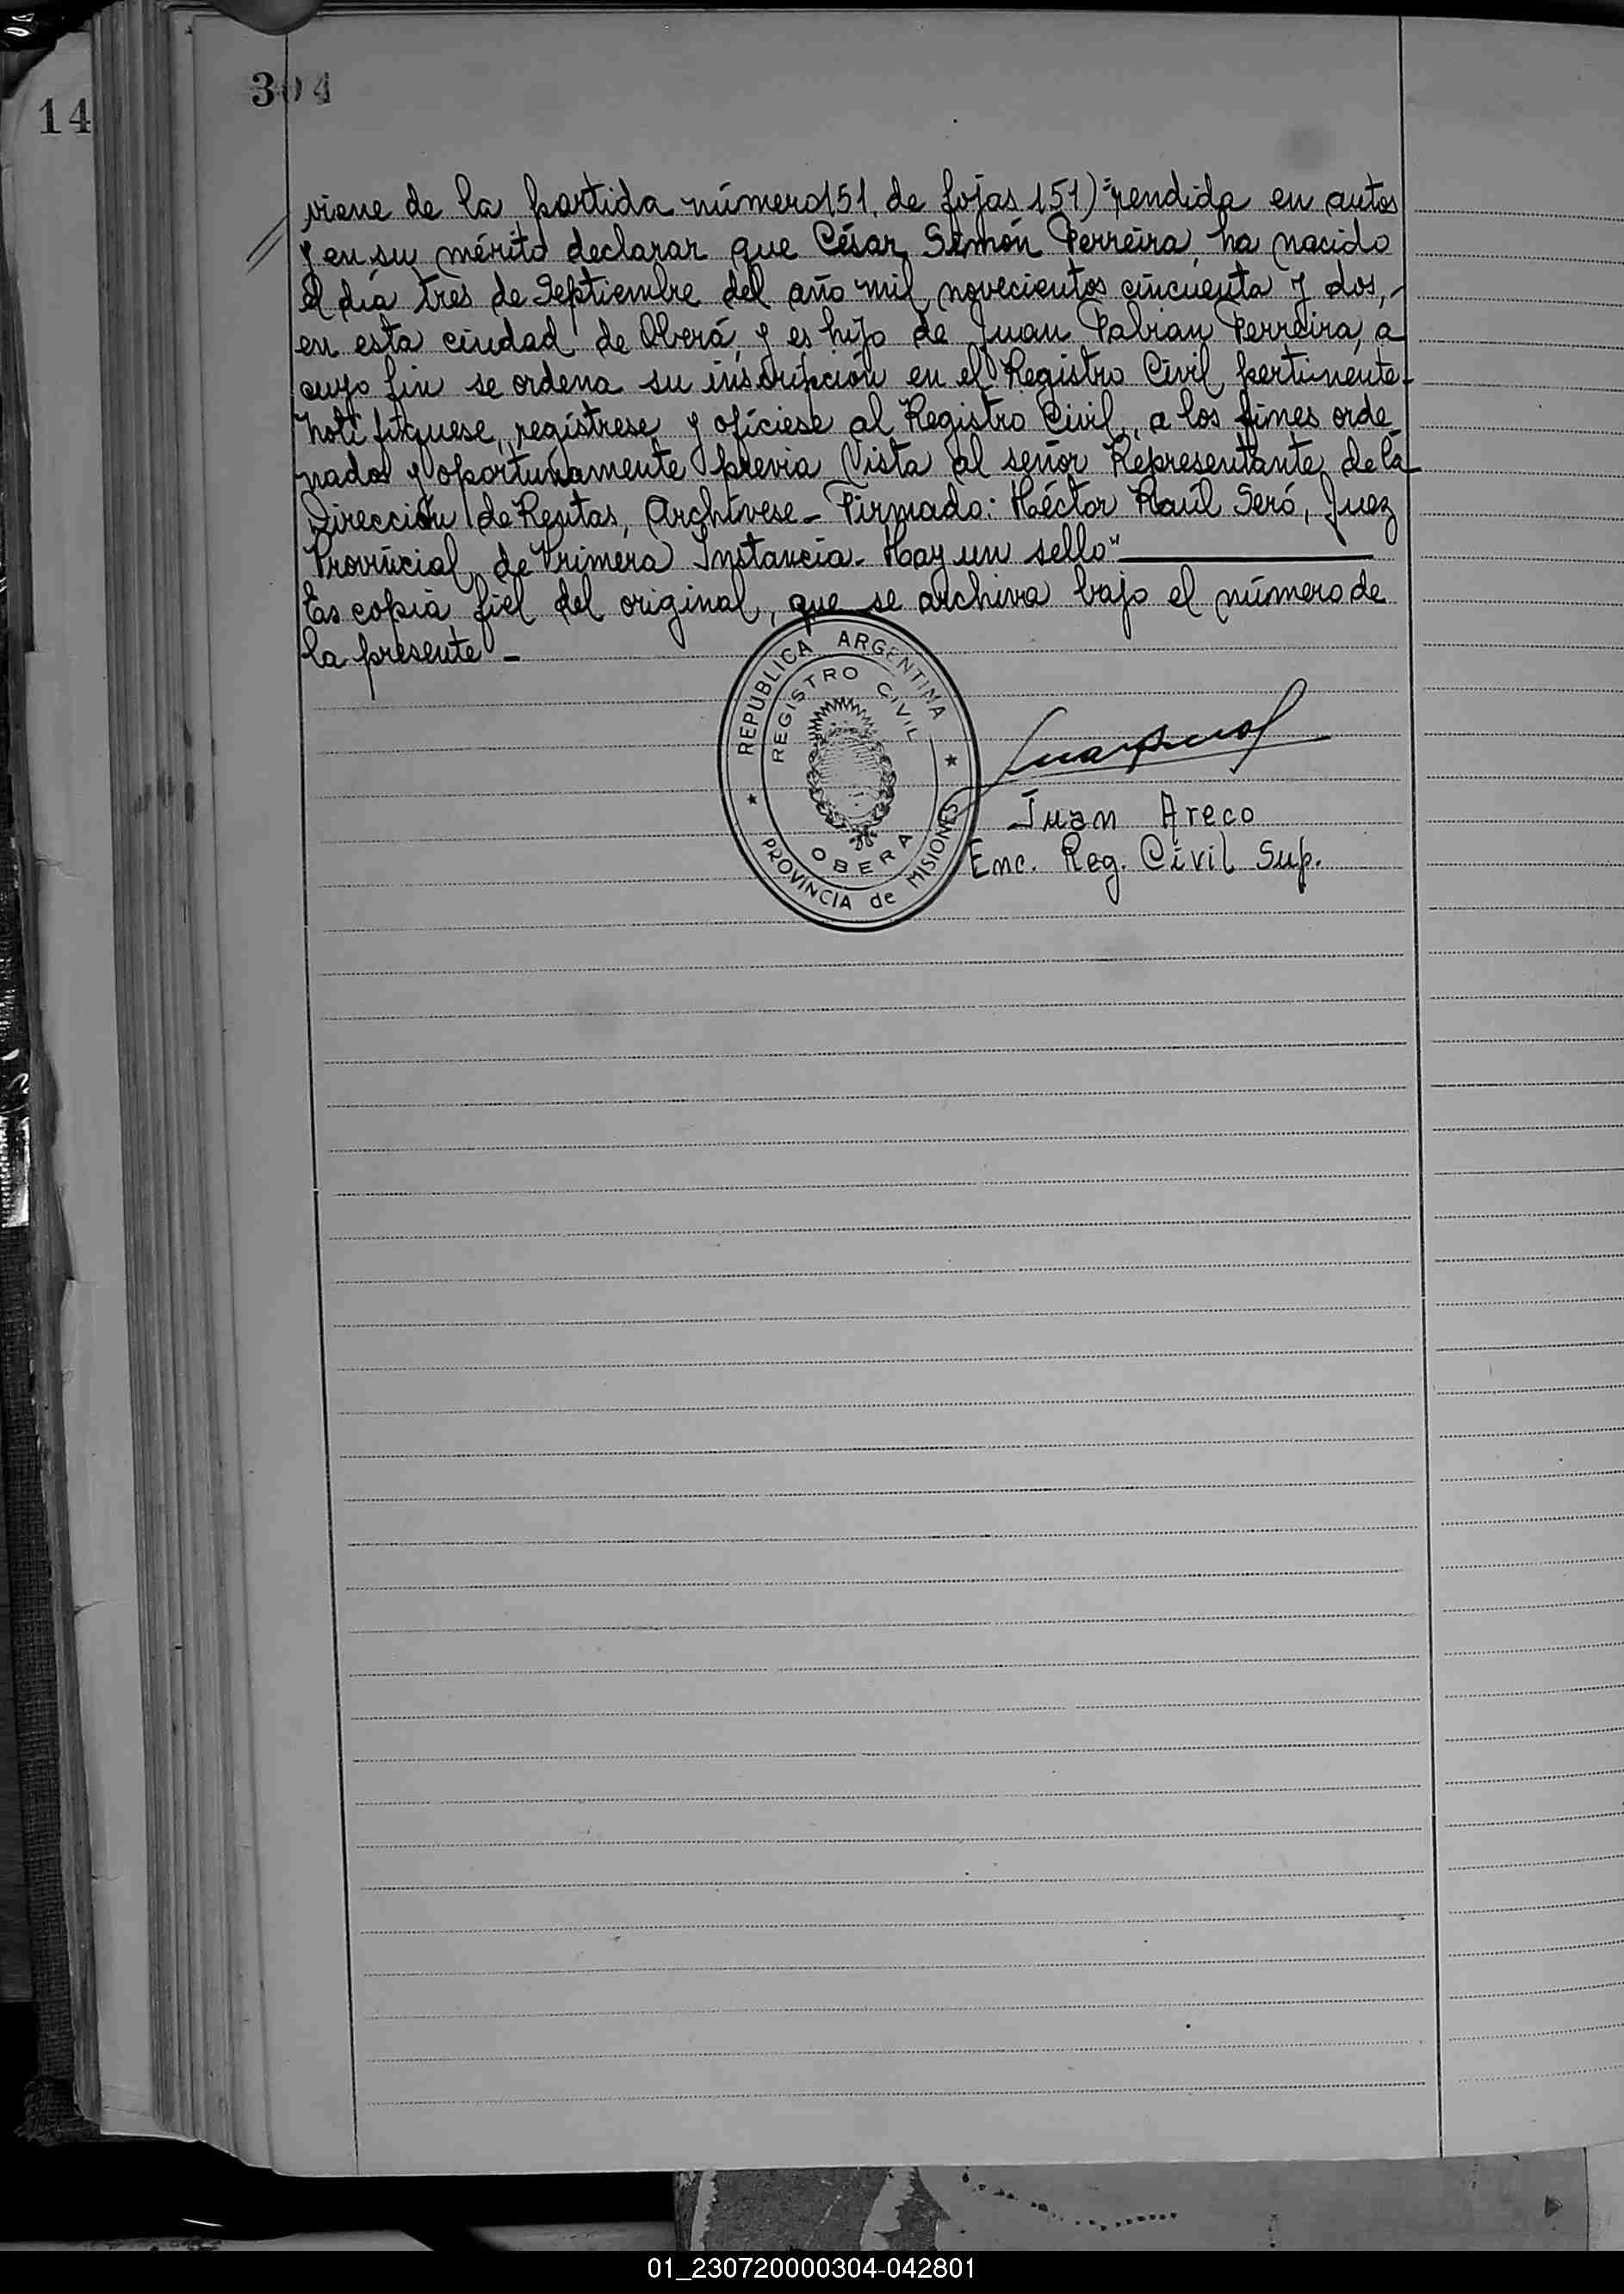 304
14
viene de la partida número 151, de fojas 151)="rendida en autos
// y en su mérito declarar que César Simón Ferreira, ha nacido
el día tres de Septiembre del año mil novecientos cincuenta y dos,-
en esta ciudad de Oberá, y es hijo de Juan Fabian Ferreira, a
cuyo fin se ordena su inscripción en el Registro Civil, pertinente-
Notifíquese, regístrese y ofíciese al Registro Civil, a los fines orde_
nados y oportunamente previa Vista al señor Representante de la
Dirección de Rentas, Archívese_ Firmado: Héctor Raúl Seró, Juez
Provincial de Primera Instancia- Hay un sello"
Es copia fiel del original, que se archiva bajo el número de
la presente-
REPUBLICA ARGENTINA
REGISTRO CIVIL
OBERA
PROVINCIA de MISIONES
Juan Areco
Enc. Reg. Civil Sup.
01_230720000304-042801